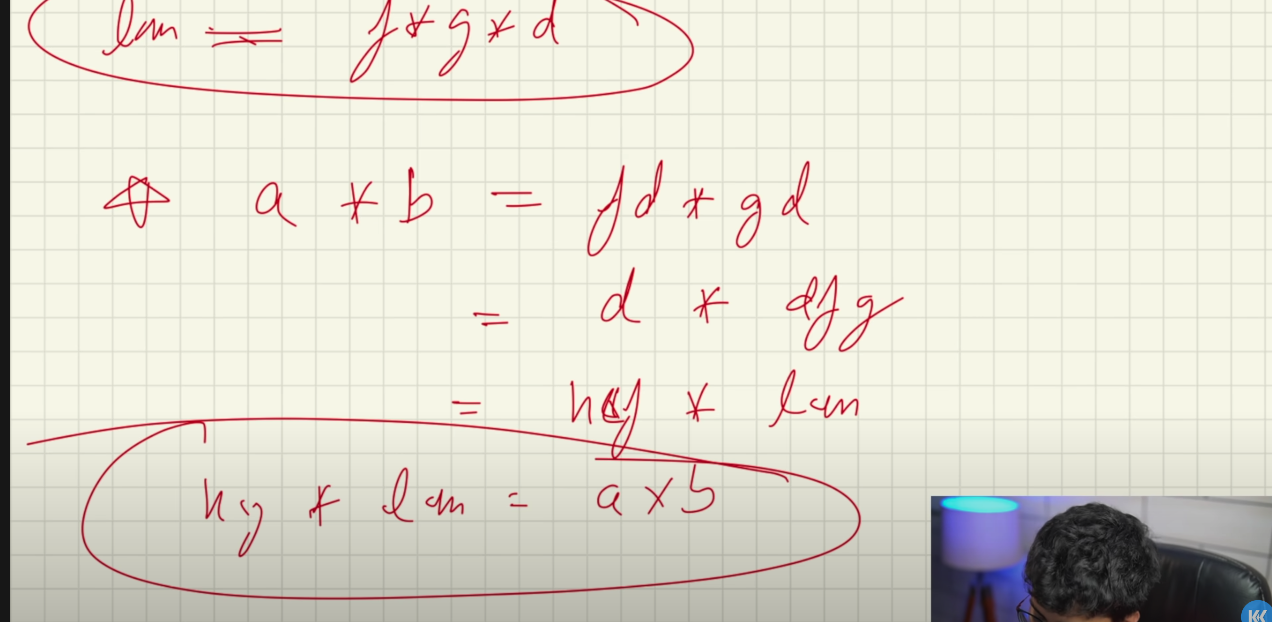 lcm = f * g * d
a * b = fd * gd
= d * dfg
= hcf * lcm
hcf * lcm = a × b